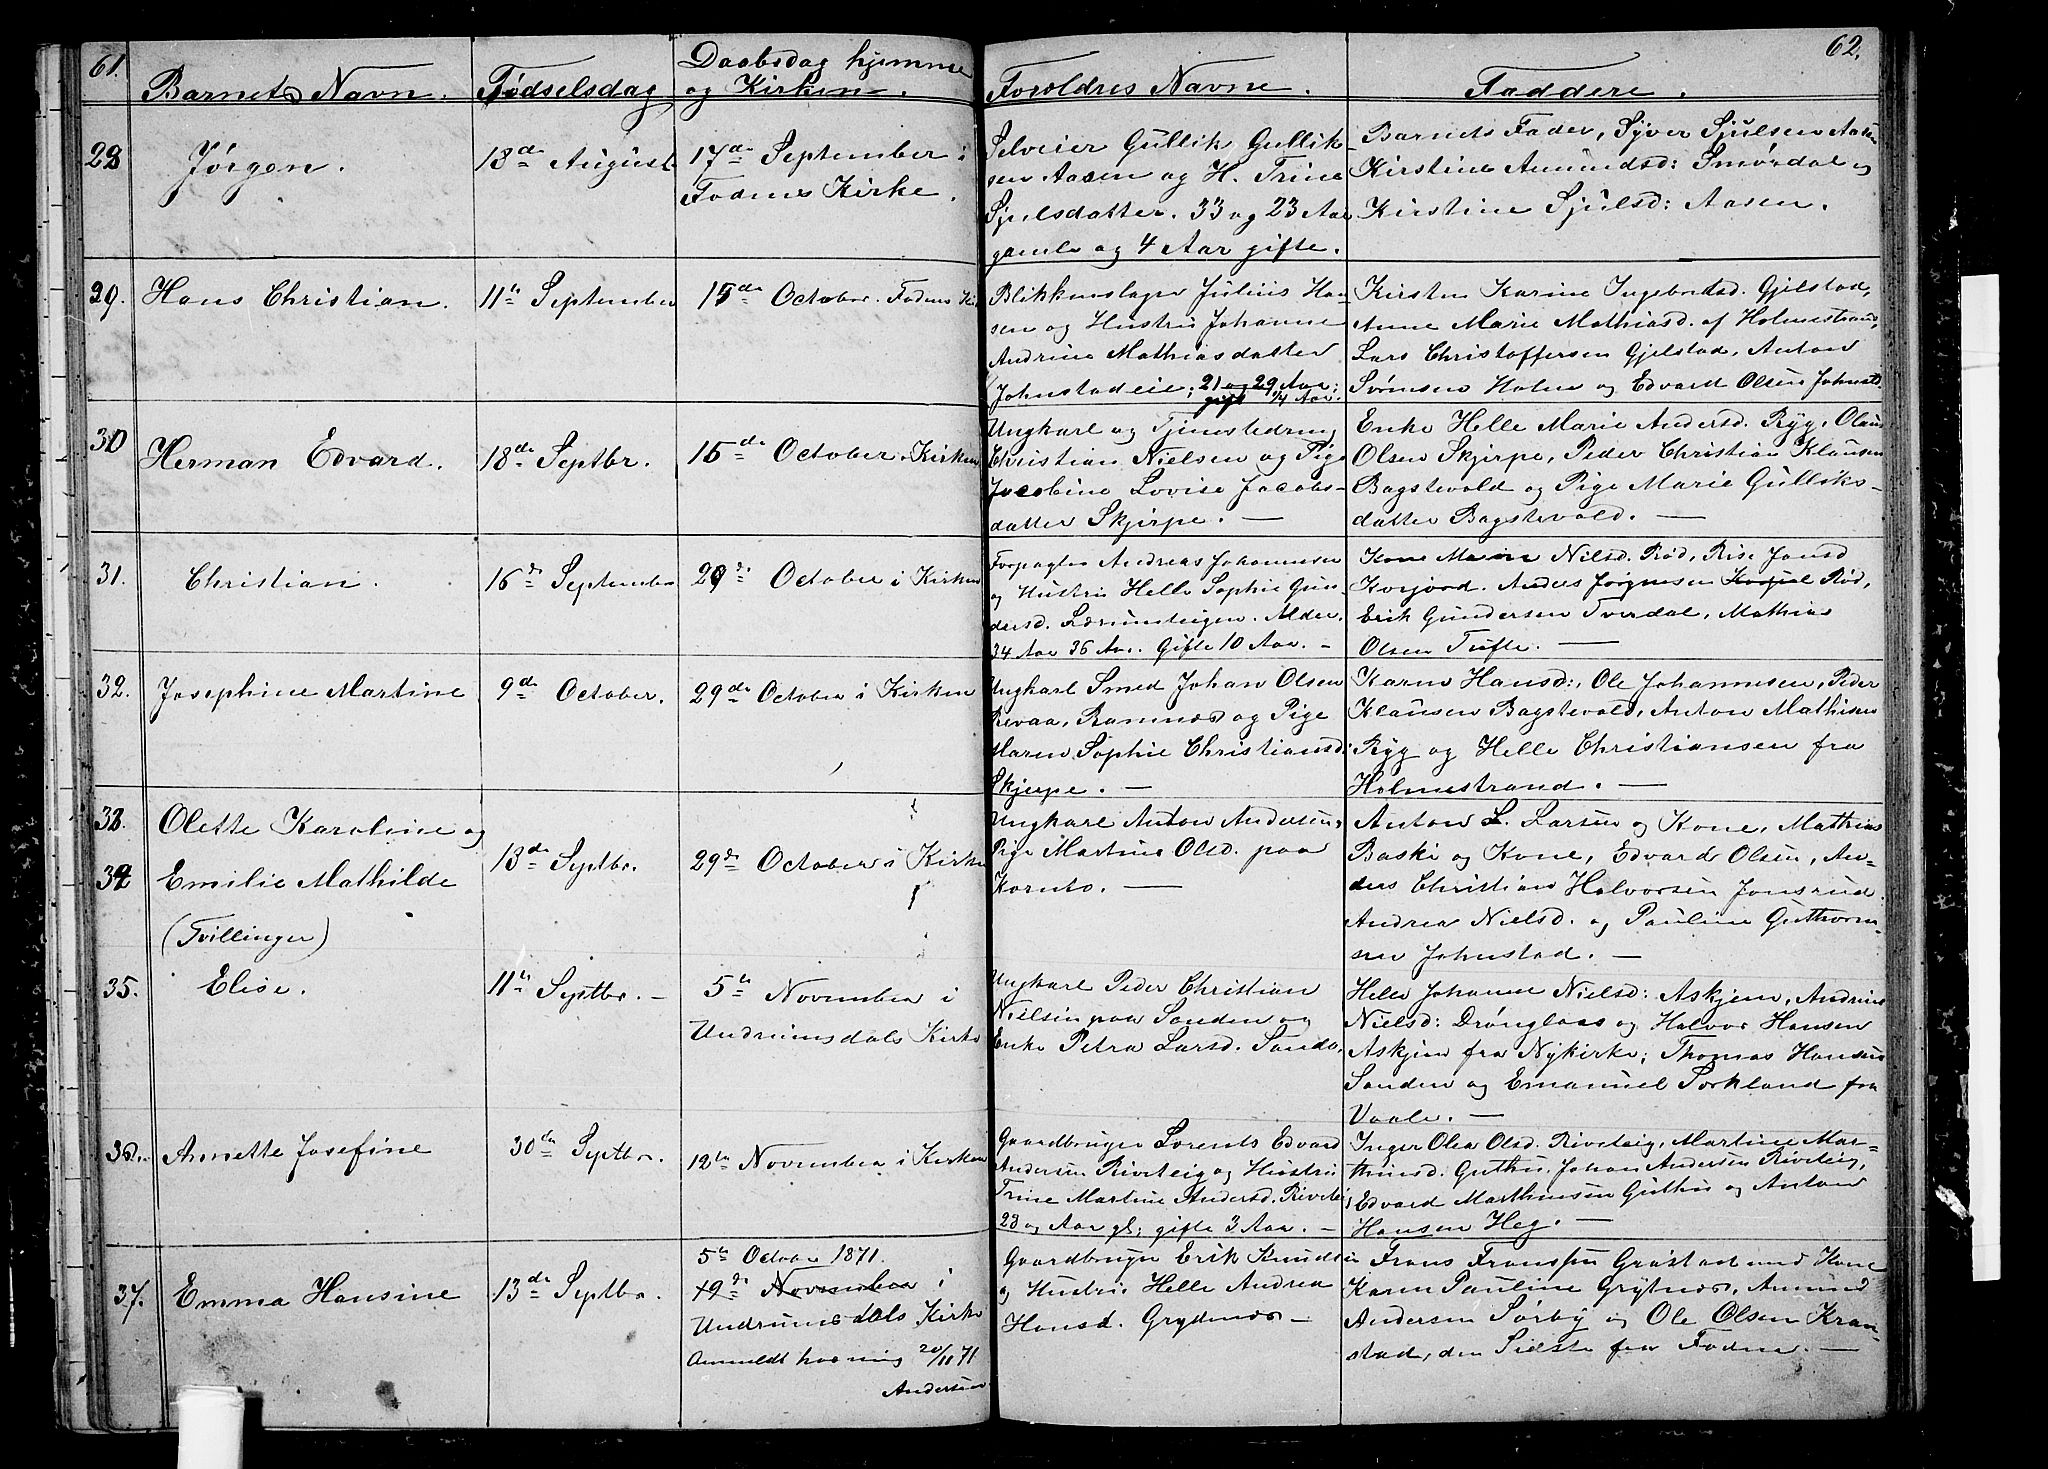 61.
Barnets Navn.
Fødselsdag
Daabsdag hjemme
og Kirken.
Forældres Navne.
Faddere.
62.
28
Jørgen.
18de August
17de September i
Fodnes Kirke.
Selveier Gullik Gullik-
sen Aasen og H. Trine
Sjulsdatter. 33 og 23 Aar
gamle og 4 Aar gifte.
Barnets Fader, Syver Sjulsen Aasen
Kirstine Amundsd: Smørdal og
Kirstine Sjulsd: Aasen.
29.
Hans Christian.
11te September
15de October. Fodnes Kir
Blikkenslager Julius Han-
sen og Hustru Johanne
Andrine Mathiasdatter
Johnstadeie; 21 og 29 Aar;
gift 1/4 Aar.
Kirsten Karine Ingebretsd. Gjelstad,
Anne Marie Mathiasd. af Holmestrand,
Lars Christoffersen Gjelstad, Anton
Sørensen Holm og Edvard Olsen Johnstd
30
Herman Edvard.
18de Septbr.
15de October i Kirken
Ungkarl og Tjenestedreng
Christian Nielsen og Pige
Jacobine Lovise Jacobs-
datter Skjerpe. —
Enke Helle Marie Andersd. Ryg, Olaus
Olsen Skjerpe, Peder Christian Klausen
Bagstevold og Pige Marie Gulliks-
datter Bagstevold. —
31.
Christian.
16de September
29de October i Kirken
Forpagter Andreas Johannesen
og Hustru Helle Sophie Gun-
dersd. Lærumteigen. Alder.
34 Aar 36 Aar. Gifte 10 Aar. -
Kone Maren Nielsd. Rød, Rise Jonsd
Korjord. Anders Jørgensen Rød,
Erik Gundersen Tverdal, Mathias
Olsen Tufte. —
32.
Josephine Martine
9de October.
29de October i Kirken
Ungkarl Smed Johan Olsen
Revaa, Ramnes og Pige
Maren Sophie Christiansd:
Skjerpe. —
Karen Hansd:, Ole Johannesen, Peder
Klausen Bagstevold, Anton Mathisen
Ryg og Helle Christiansen fra
Holmestrand. —
33.
Olette Karoline og
34
Emilie Mathilde
(Tvillinger)
13de Septbr.
29de October i Kirken
Ungkarl Anton Andersen,
Pige Martine Olsd. paa
Kornto. —
Anton L. Larsen og Kone, Mathias
Baski og Kone, Edvard Olsen, An-
ders Christian Halvorsen Jonsrud
Andrea Nielsd. og Pauline Guthorm-
sen Johnstad. —
35.
Elise.
11te Septbr. -
5te November i
Undrumsdals Kirke
Ungkarl Peder Christian
Nielsen paa Sanden og
Enke Petra Larsd. Sande.
Helle Johanne Nielsd: Askjem, Andrine
Nielsd: Drønglaas og Halvor Hansen
Askjem fra Nykirke; Thomas Hansen
Sanden og Emanuel Porkland fra
Vaale. —
36.
Annette Josefine
30de Septbr.
12te November i Kirken
Gaardbruger Lorents Edvard
Andersen Riveteig og Hustru
Trine Martine Andersd. Riveteig
23 og Aar gl; gifte 3 Aar. -
Inger Olea Olsd. Riveteig, Martine Mar-
thinsd. Guthu. Johan Andersen Riveteig,
Edvard Marthinsen Guthu og Anton
Hansen Heg. —
37.
Emma Hansine
13de Septbr.
5te October 1871.
19de November i
Undrumsdals Kirke
Anmeldt for mig 20/11 71
Andersen
Gaardbruger Erik Knudsen
og Hustru Helle Andrea
Hansd. Grydenæs —
Frans Fransen Grøstad med Kone
Karen Pauline Grytnæs, Amund
Andersen Sørby og Ole Olsen Kran-
stad, den Sidste fra Fodne. —